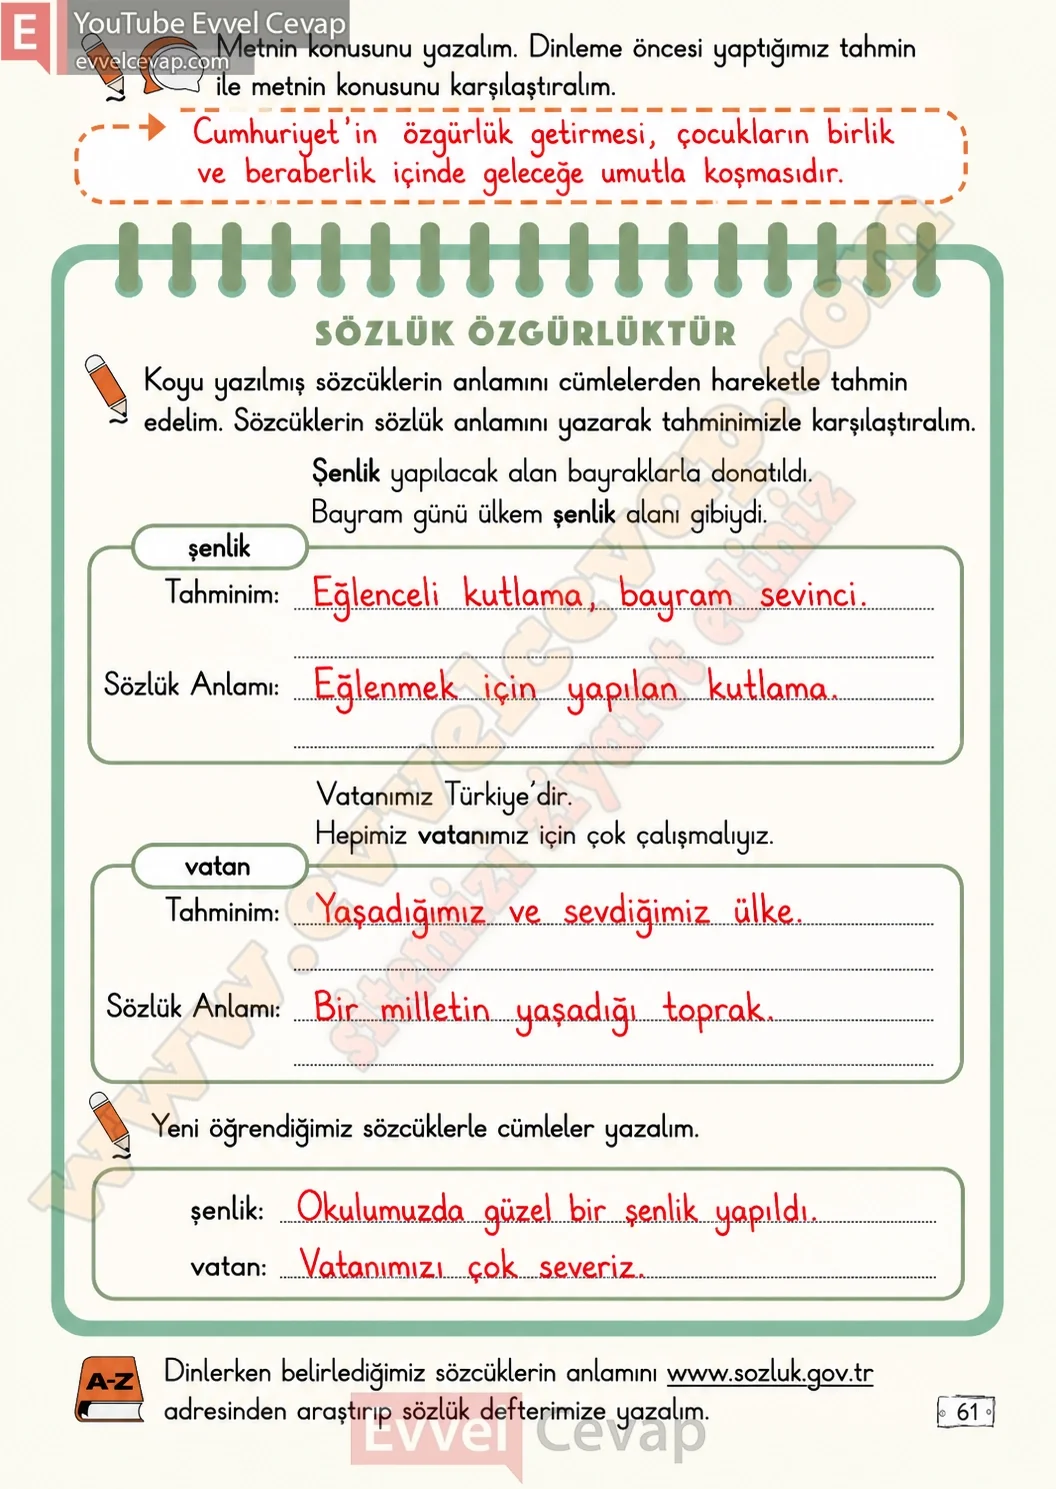 E
YouTube Evvel Cevap
evvelcevap.com
Metnin konusunu yazalım. Dinleme öncesi yaptığımız tahmin
ile metnin konusunu karşılaştıralım.
Cumhuriyet'in özgürlük getirmesi, çocukların birlik
ve beraberlik içinde geleceğe umutla koşmasıdır.
SÖZLÜK ÖZGÜRLÜKTÜR
Koyu yazılmış sözcüklerin anlamını cümlelerden hareketle tahmin
edelim. Sözcüklerin sözlük anlamını yazarak tahminimizle karşılaştıralım.
Şenlik yapılacak alan bayraklarla donatıldı.
Bayram günü ülkem şenlik alanı gibiydi.
şenlik
Tahminim: Eğlenceli kutlama, bayram sevinci.
Sözlük Anlamı: Eğlenmek için yapılan kutlama.
Vatanımız Türkiye'dir.
Hepimiz vatanımız için çok çalışmalıyız.
vatan
Tahminim: Yaşadığımız ve sevdiğimiz ülke.
Sözlük Anlamı: Bir milletin yaşadığı toprak.
Yeni öğrendiğimiz sözcüklerle cümleler yazalım.
şenlik: Okulumuzda güzel bir şenlik yapıldı.
vatan: Vatanımızı çok severiz.
A-Z
Dinlerken belirlediğimiz sözcüklerin anlamını www.sozluk.gov.tr
adresinden araştırıp sözlük defterimize yazalım.
61
Evvel Cevap
www.evvelcevap.com
sitemizi ziyaret ediniz